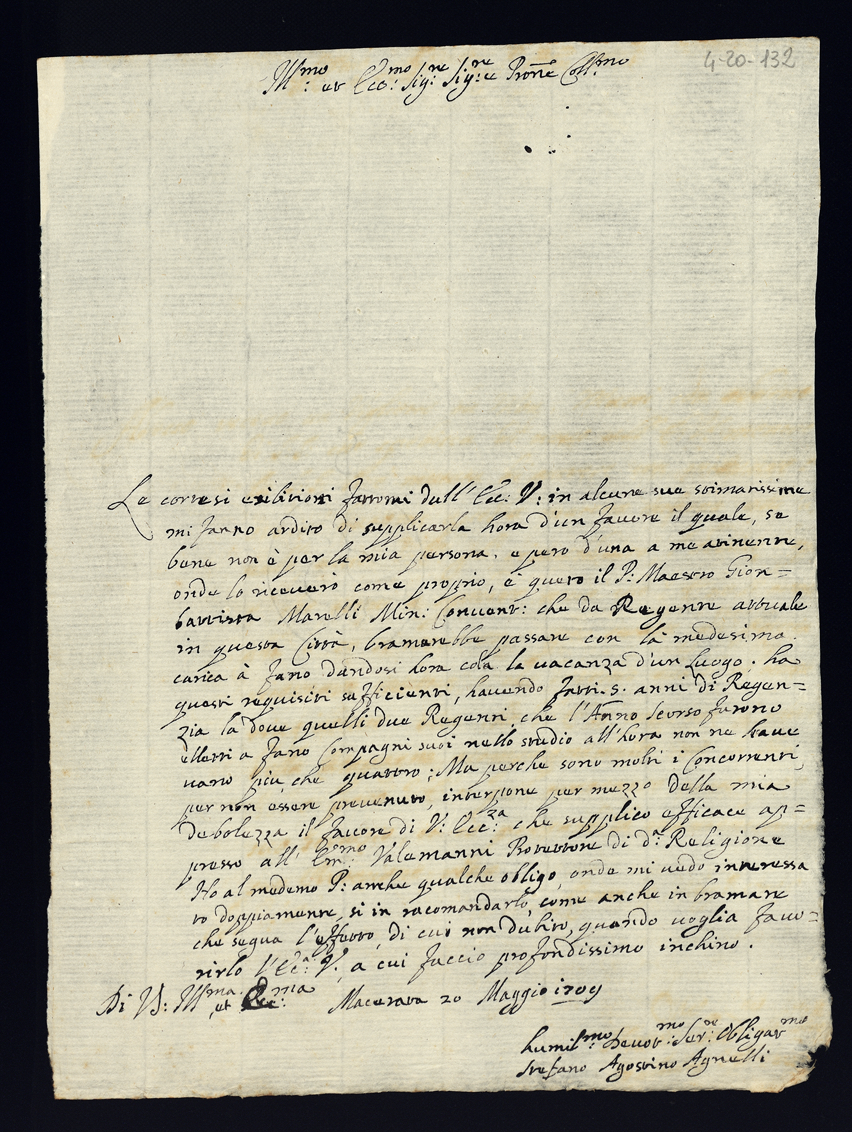 4-20-132
Ill:mo et Ecc:mo Sig:re Sig:re Prone Coll:mo
Le cortesi esibitioni fattomi dall' Ecc: V: in alcune sue stimatissime
mi fanno ardito di supplicarla hora d'un favore il quale, se
bene non è per la mia persona, e però d'una a me atinente,
onde lo riceverò come proprio, e questo il P: Maestro Gion=
battista Marelli Min: Convent: che da Regente attuale
in questa Città, bramarebbe passare con la medesima
carica à Fano dandosi hora colà la vacanza d'un Luogo. ha
questi requisiti sufficienti, havendo fatti. 5. anni di Regen=
zia la dove quelli due Regenti, che l'Anno scorso furono
elletti a Fano Compagni suoi nello studio all'hora non ne have
vano più, che quattro; Ma perche sono molti i Concorrenti,
per non essere prevenuto, interpone per mezzo della mia
debolezza il favore di V: Ecc:za che supplico efficace ap=
presso all' Em:mo Valemanni Protettore di d:a Religione
Ho al medemo P: anche qualche obligo, onde mi vedo interessa
to doppiamente, si in racomandarlo, come anche in bramare
che segua l'effetto, di cui non dubito, quando voglia favo=
rirlo l'Ec:a V:, a cui faccio profondissimo inchino.
Di V: Ill:ma et Ecc:ma Macerata 20 Maggio 1709
humil:mo Devot:mo Ser:re Obligat:mo
Stefano Agostino Agnelli